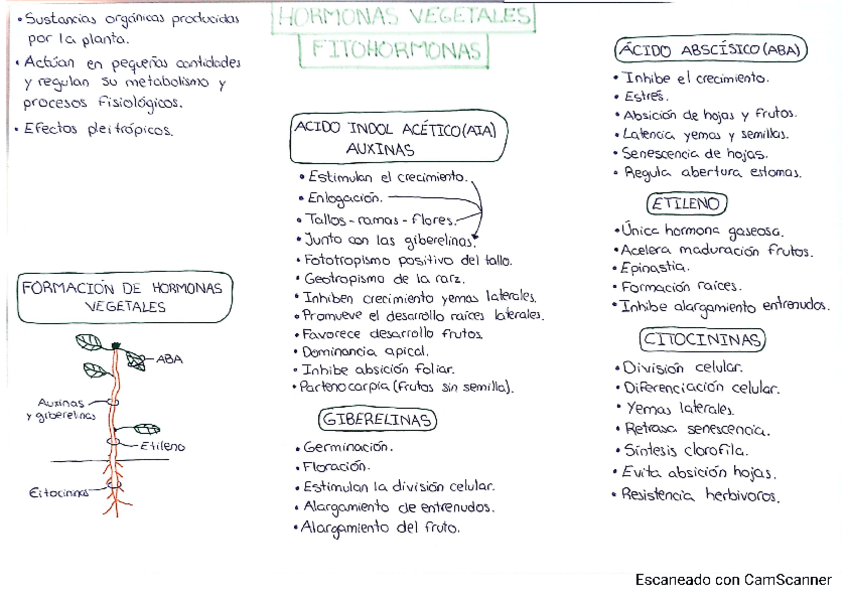 HORMONAS VEGETALES
FITOHORMONAS
• Sustancias orgánicas producidas
por la planta.
• Actúan en pequeñas cantidades
y regulan su metabolismo y
procesos fisiológicos.
• Efectos pleitrópicos.
FORMACIÓN DE HORMONAS
VEGETALES
ABA
Auxinas
y giberelinas
Etileno
Citocininas
ACIDO INDOL ACÉTICO (AIA)
AUXINAS
• Estimulan el crecimiento.
• Enlogación.
• Tallos - ramas - flores.
• Junto con las giberelinas.
• Fototropismo positivo del tallo.
• Geotropismo de la raíz.
• Inhiben crecimiento yemas laterales.
• Promueve el desarrollo raíces laterales.
• Favorece desarrollo frutos.
• Dominancia apical.
• Inhibe absición foliar.
• Partenocarpia (frutos sin semilla).
GIBERELINAS
• Germinación.
• Floración.
• Estimulan la división celular.
• Alargamiento de entrenudos.
• Alargamiento del fruto.
ÁCIDO ABSCÍSICO (ABA)
• Inhibe el crecimiento.
• Estrés.
• Absición de hojas y frutos.
• Latencia yemas y semillas.
• Senescencia de hojas.
• Regula abertura estomas.
ETILENO
• Única hormona gaseosa.
• Acelera maduración frutos.
• Epinastia.
• Formación raíces.
• Inhibe alargamiento entrenudos.
CITOCININAS
• División celular.
• Diferenciación celular.
• Yemas laterales.
• Retrasa senescencia.
• Síntesis clorofila.
• Evita absición hojas.
• Resistencia herbivoros.
Escaneado con CamScanner